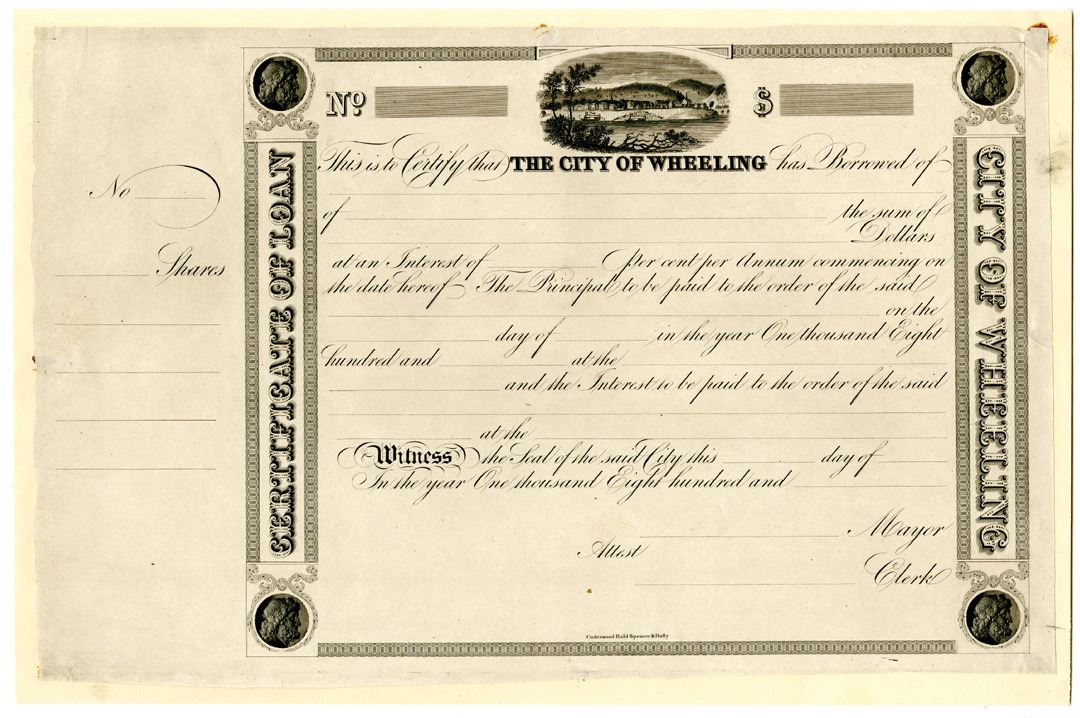 No
Shares
CERTIFICATE OF LOAN
No $
This is to Certify that THE CITY OF WHEELING has Borrowed of
of the sum of
Dollars
at an Interest of Per cent per Annum commencing on
the date hereof The Principal to be paid to the order of the said
on the
day of in the year One thousand Eight
hundred and at the
and the Interest to be paid to the order of the said
at the
Witness the Seal of the said City this day of
In the year One thousand Eight hundred and
Mayor
Attest
Clerk
Underwood Bald Spencer & Hufty
CITY OF WHEELING